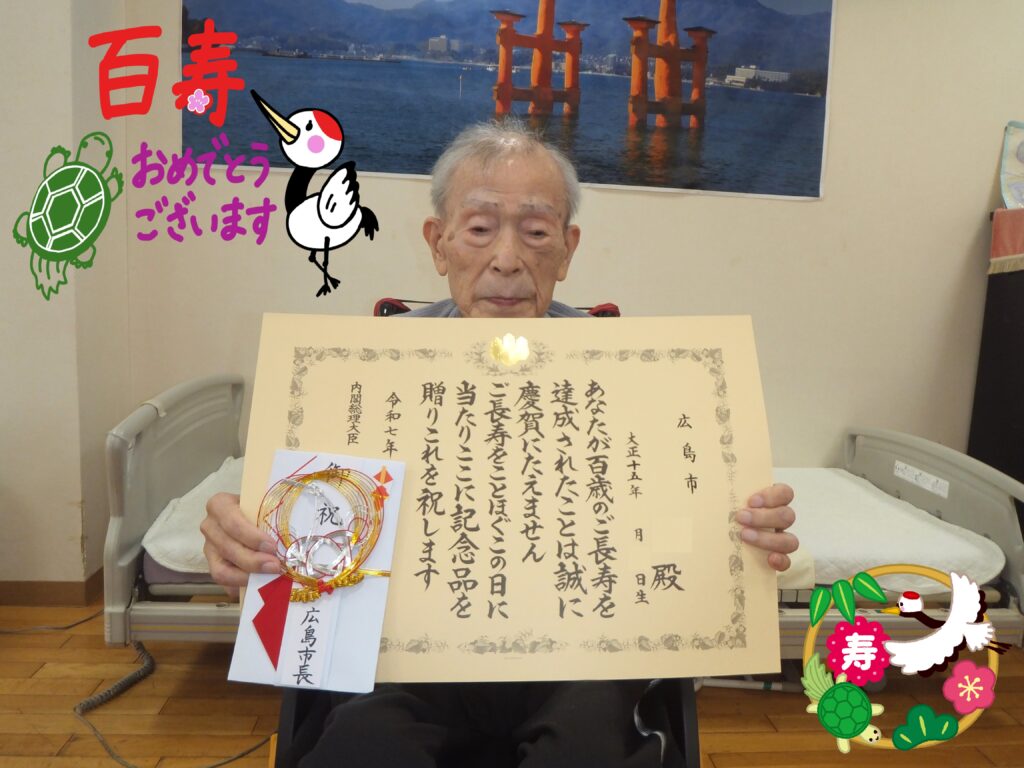 百寿
おめでとう
ございます
広島市
大正十五年 月 日生
殿
あなたが百歳のご長寿を
達成されたことは誠に
慶賀にたえません
ご長寿をことほぐこの日に
当たりここに記念品を
贈りこれを祝します
令和七年
内閣総理大臣
祝
広島市長
寿